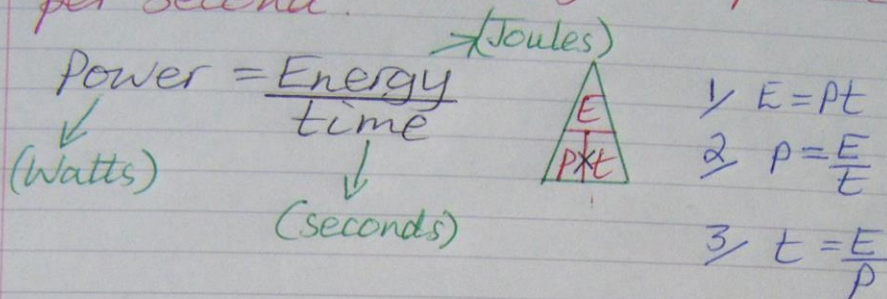 per second.
Power = Energy / time
(Joules)
(Watts)
(seconds)
E
P×t
1/ E = Pt
2/ P = E / t
3/ t = E / P